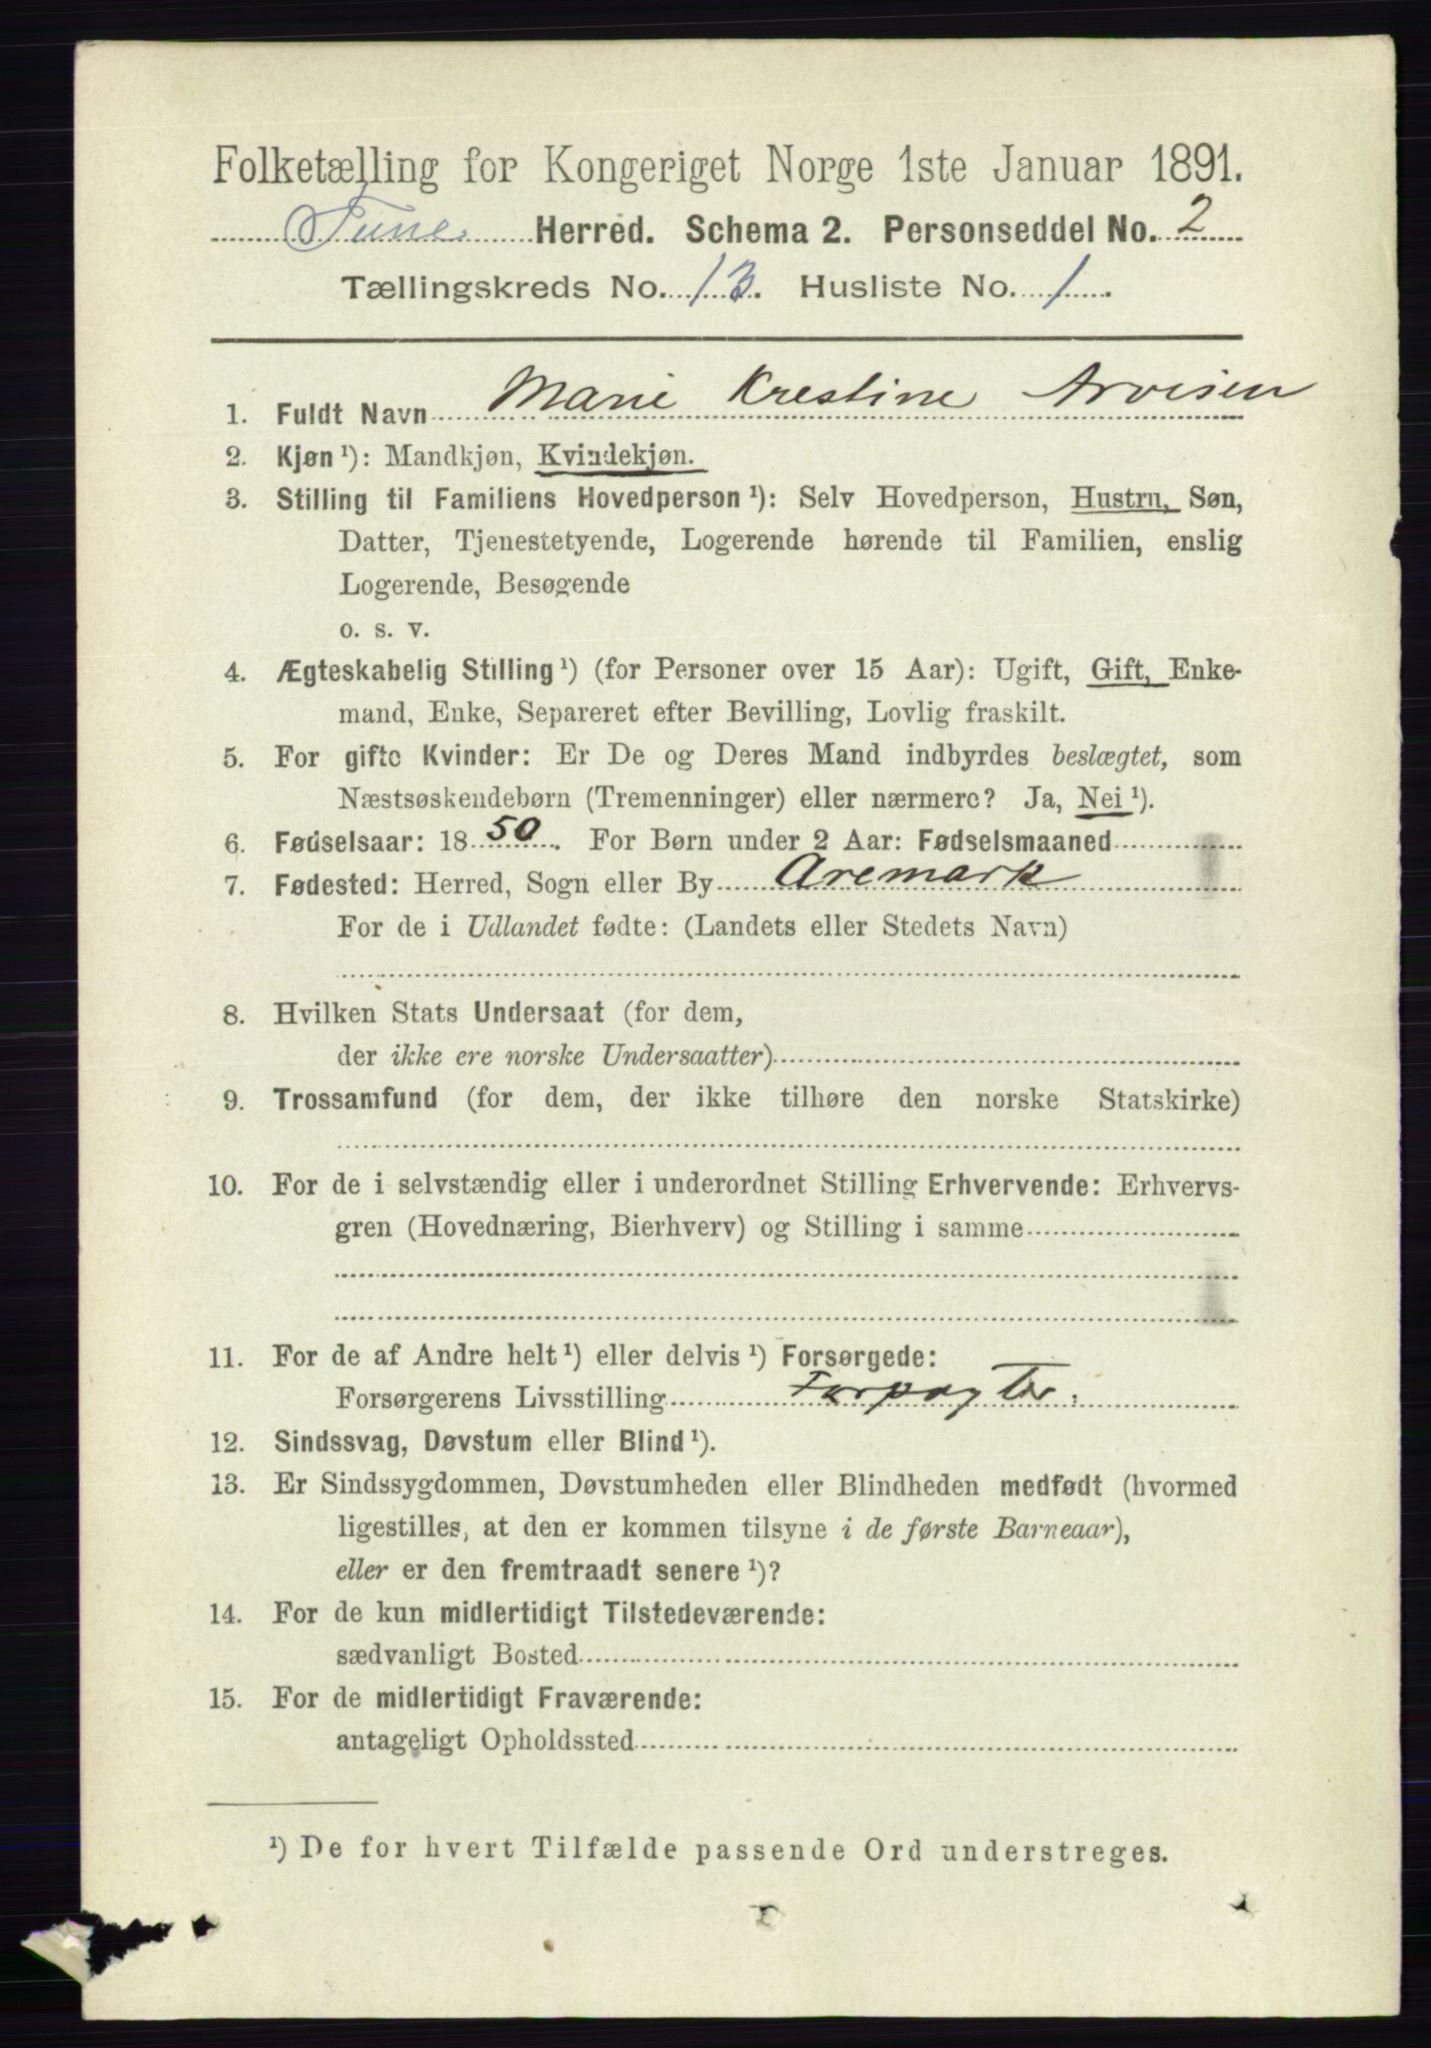 Folketælling for Kongeriget Norge 1ste Januar 1891.
Tune Herred. Schema 2. Personseddel No. 2
Tællingskreds No. 13. Husliste No. 1.
1. Fuldt Navn Marie Krestine Arvesen
2. Kjøn ¹): Mandkjøn, Kvindekjøn.
3. Stilling til Familiens Hovedperson ¹): Selv Hovedperson, Hustru, Søn,
Datter, Tjenestetyende, Logerende hørende til Familien, enslig
Logerende, Besøgende
o. s. v.
4. Ægteskabelig Stilling ¹) (for Personer over 15 Aar): Ugift, Gift, Enke-
mand, Enke, Separeret efter Bevilling, Lovlig fraskilt.
5. For gifte Kvinder: Er De og Deres Mand indbyrdes beslægtet, som
Næstsøskendebørn (Tremenninger) eller nærmere? Ja, Nei ¹).
6. Fødselsaar: 1850. For Børn under 2 Aar: Fødselsmaaned
7. Fødested: Herred, Sogn eller By Aremark
For de i Udlandet fødte: (Landets eller Stedets Navn)
8. Hvilken Stats Undersaat (for dem,
der ikke ere norske Undersaatter)
9. Trossamfund (for dem, der ikke tilhøre den norske Statskirke)
10. For de i selvstændig eller i underordnet Stilling Erhvervende: Erhvervs-
gren (Hovednæring, Bierhverv) og Stilling i samme
11. For de af Andre helt ¹) eller delvis ¹) Forsørgede:
Forsørgerens Livsstilling Forpagter.
12. Sindssvag, Døvstum eller Blind ¹).
13. Er Sindssygdommen, Døvstumheden eller Blindheden medfødt (hvormed
ligestilles, at den er kommen tilsyne i de første Barneaar),
eller er den fremtraadt senere ¹)?
14. For de kun midlertidigt Tilstedeværende:
sædvanligt Bosted
15. For de midlertidigt Fraværende:
antageligt Opholdssted
¹) De for hvert Tilfælde passende Ord understreges.